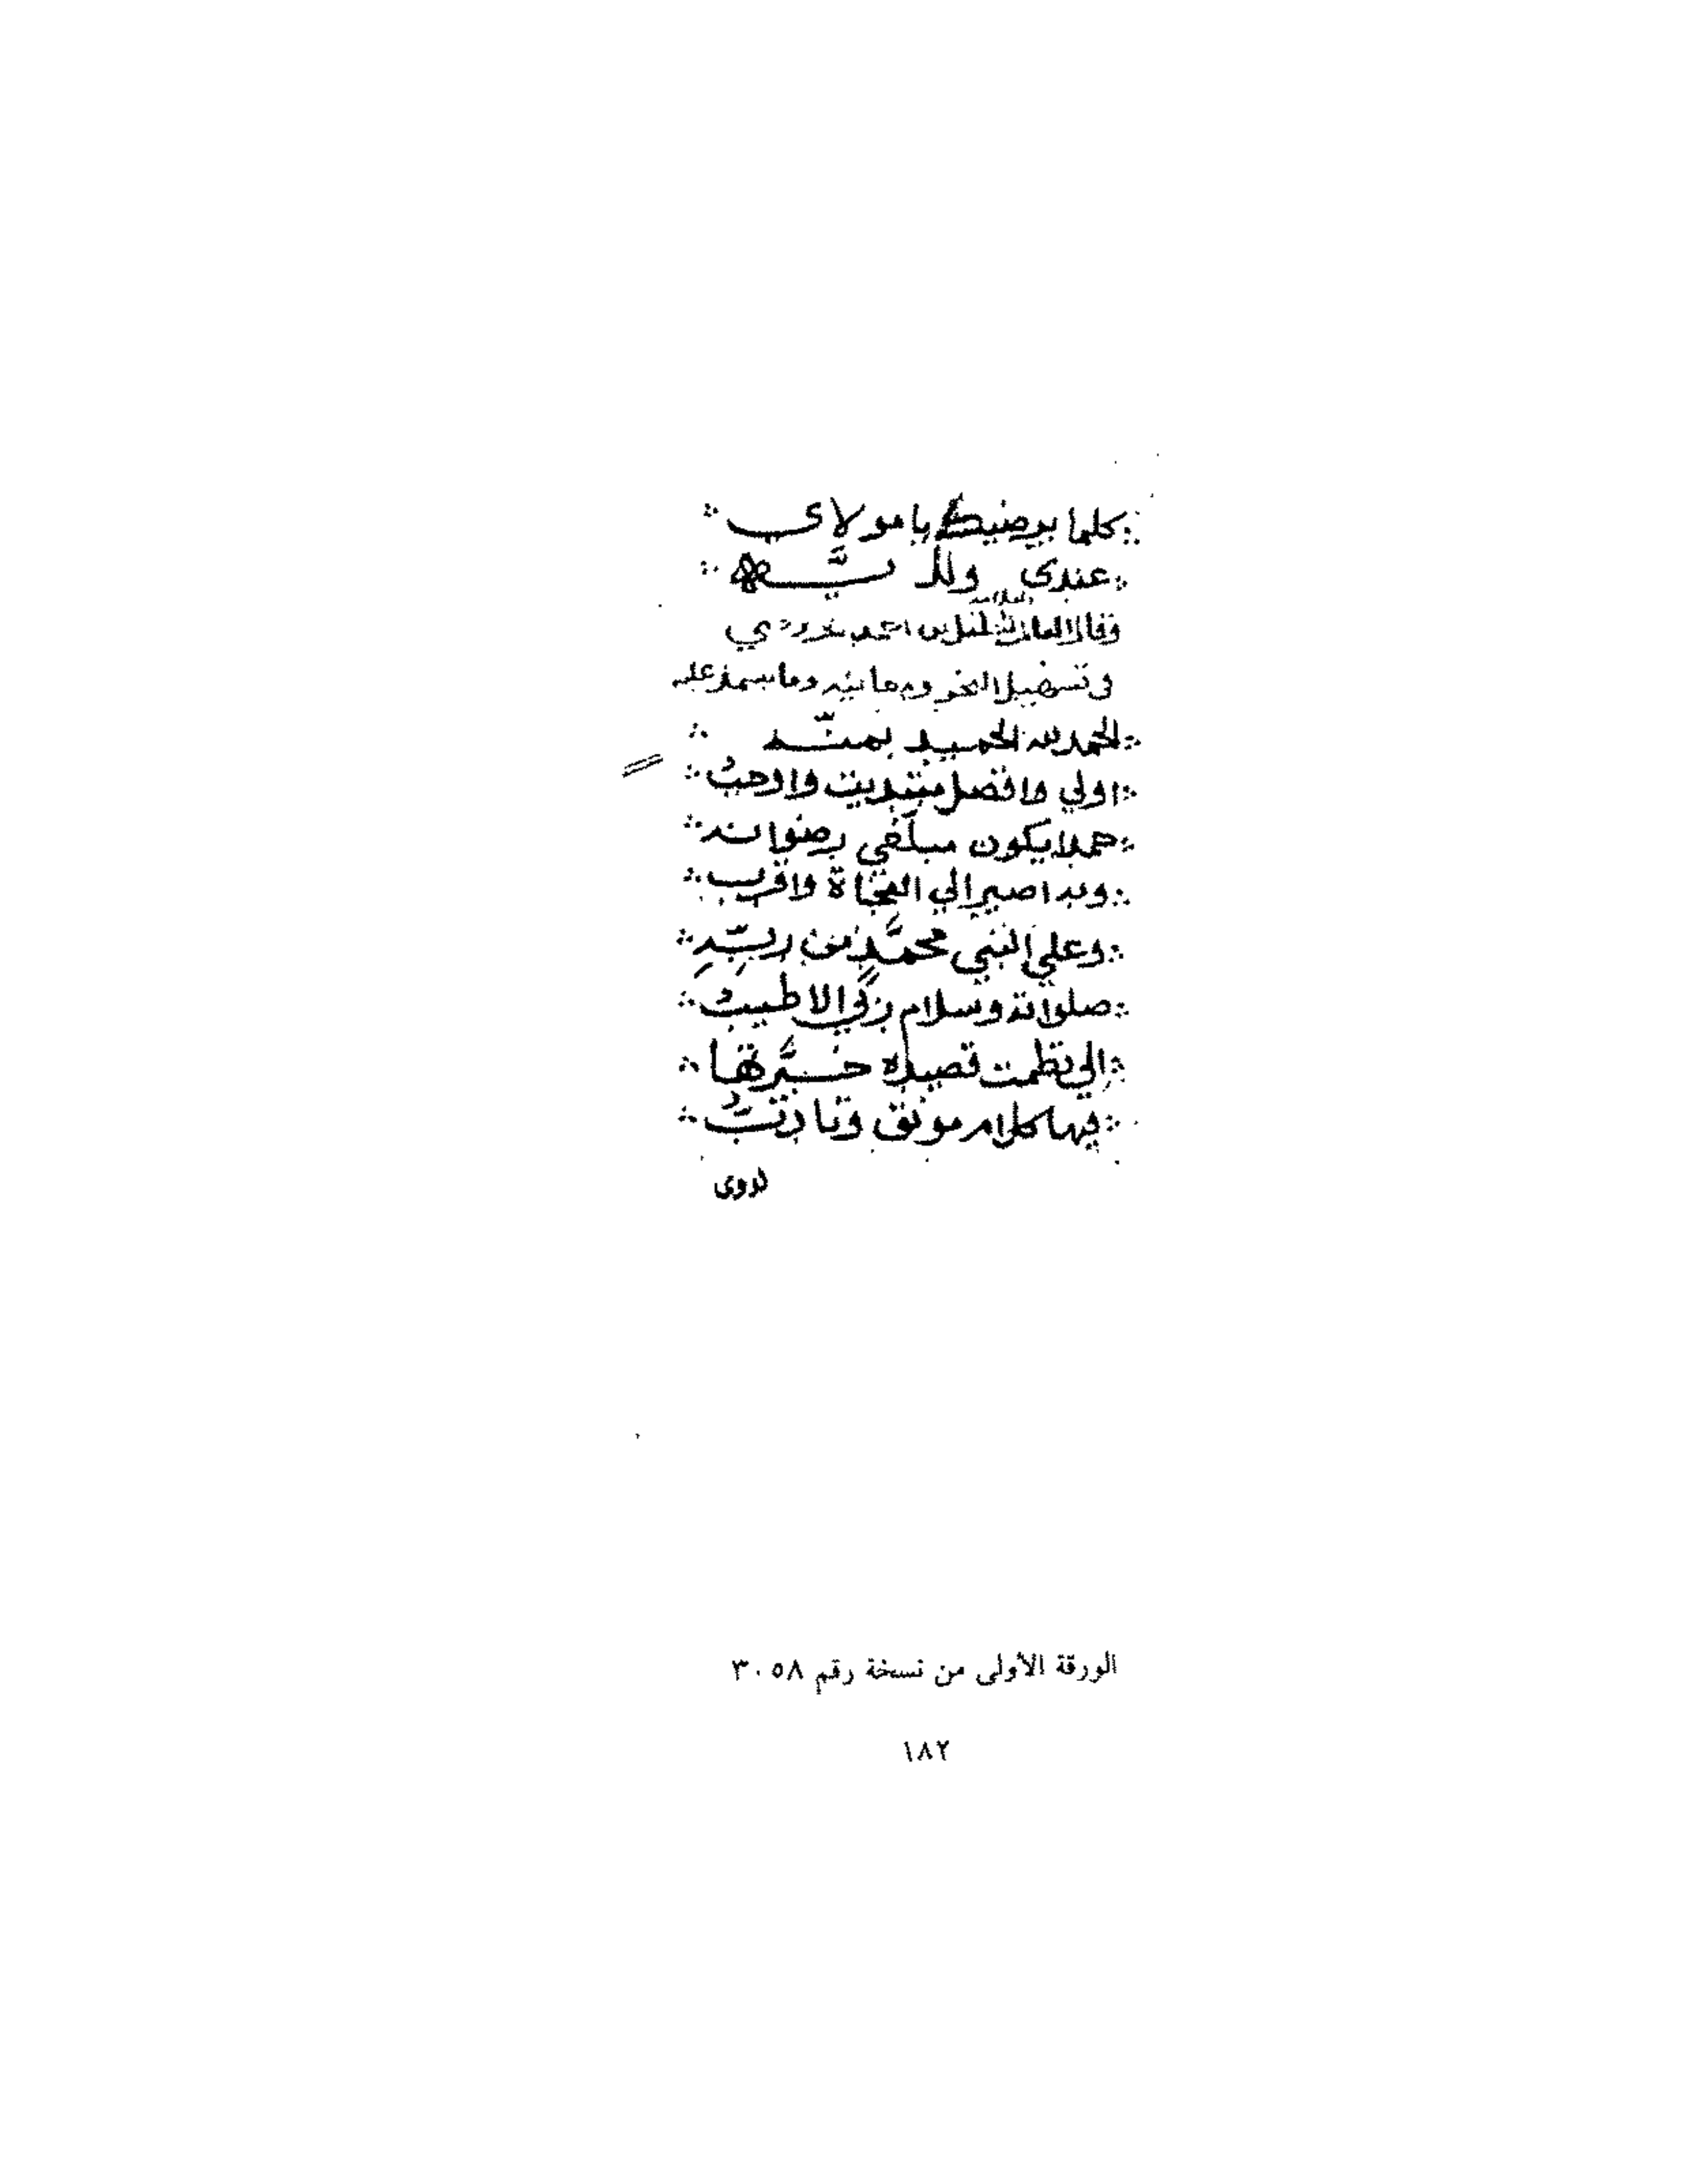 كلما يرضيك يا مولاي
عندي ولذ يه
العلامه
وقال العالم الخليل بن احمد
في تسهيل النحو ومعانيه وما يسهل عليه
الحمد لله الحميد بمنّه
اولي وافضل ما ابتديت واوجبُ
حمدا يكون مبلّغي رضوانه
وبه اصير الي النجاة واقرب
وعلي النبي محمّدٍ من ربّهِ
صلواته وسلام ربّي الاطيبُ
اني نظمت قصيدة حبّرتها
فيها كلام مونق وتادّبُ
لذوي
الورقة الأولى من نسخة رقم ٣٠٥٨
١٨٢